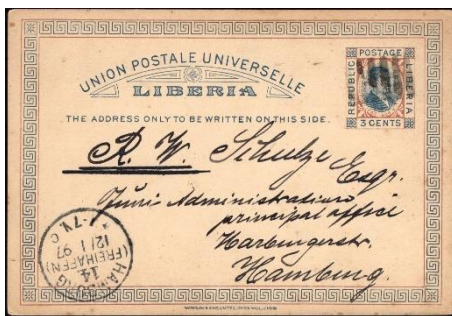 UNION POSTALE UNIVERSELLE
LIBERIA
THE ADDRESS ONLY TO BE WRITTEN ON THIS SIDE.
REPUBLIC
POSTAGE
LIBERIA
3 CENTS
R. W. Schulze Esqr.
Administration
principal office
Harburgerstr.
Hamburg.
HAMBURG
14
(FREIHAFEN)
12/1 97
7-